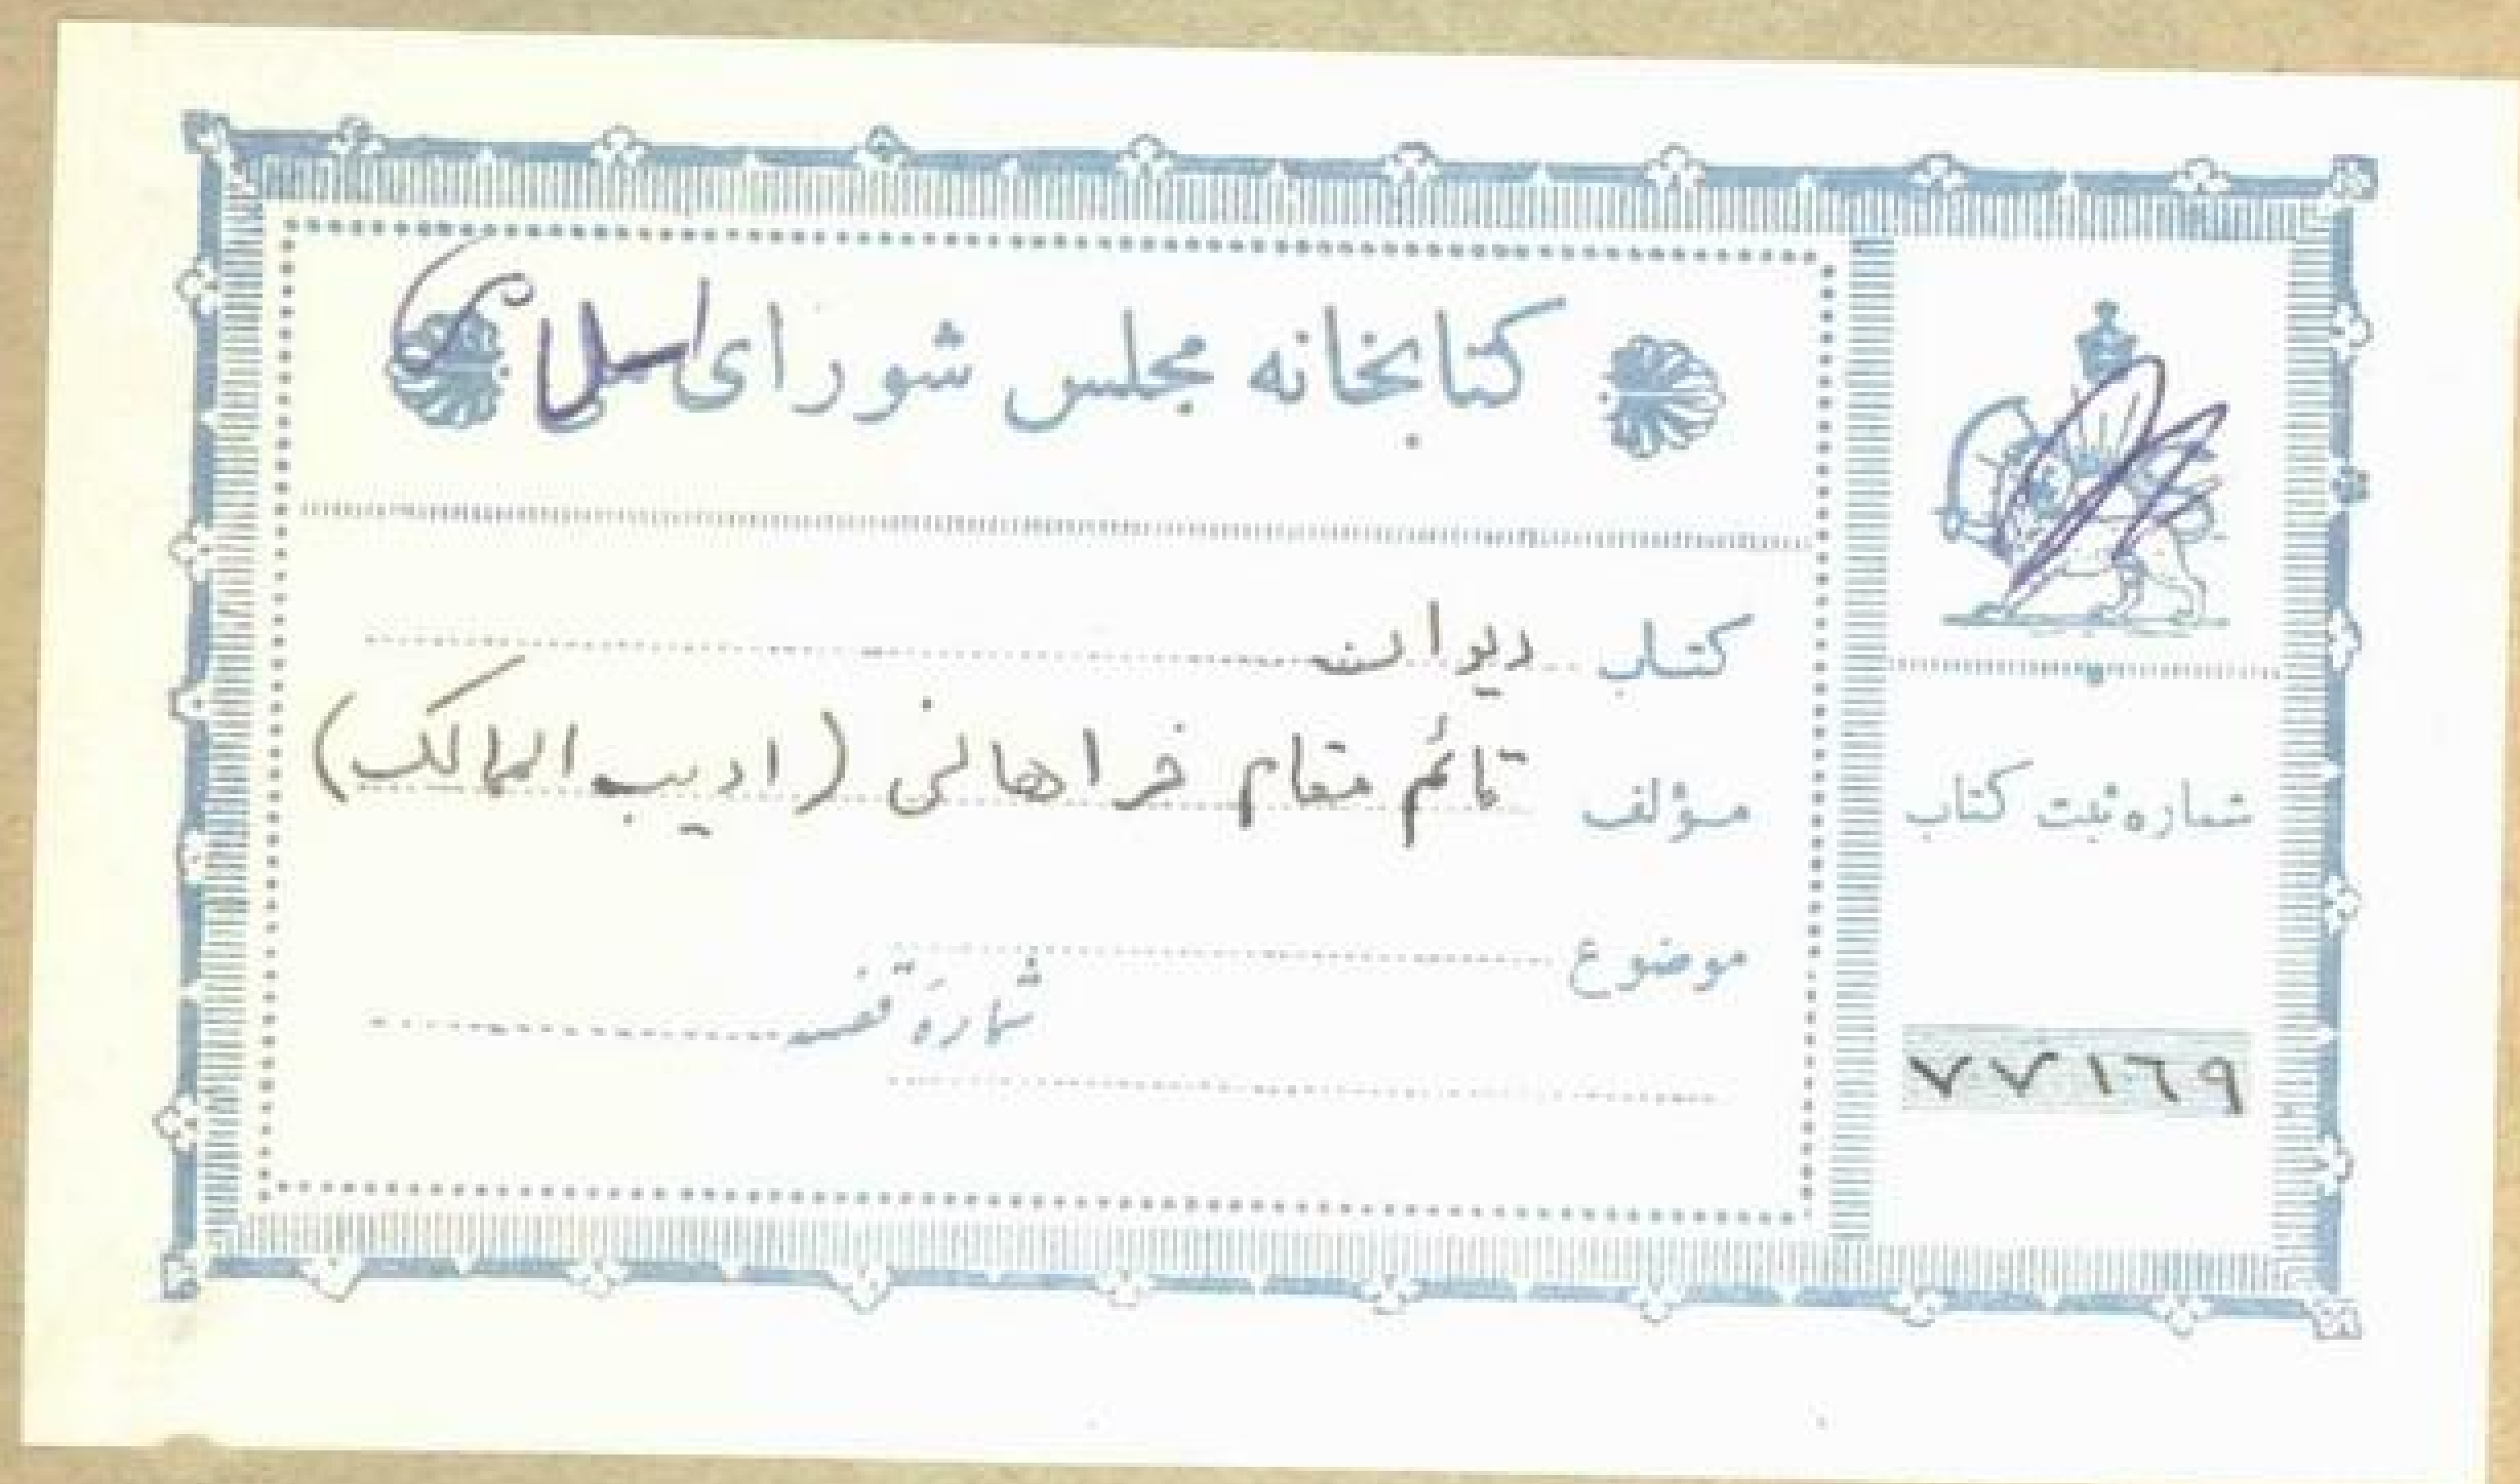 کتابخانه مجلس شورای اسلامی
کتاب دیوان
مؤلف قائم مقام فراهانی (ادیب الممالک)
موضوع
شماره قفسه
شماره ثبت کتاب
٧٧١٦٩